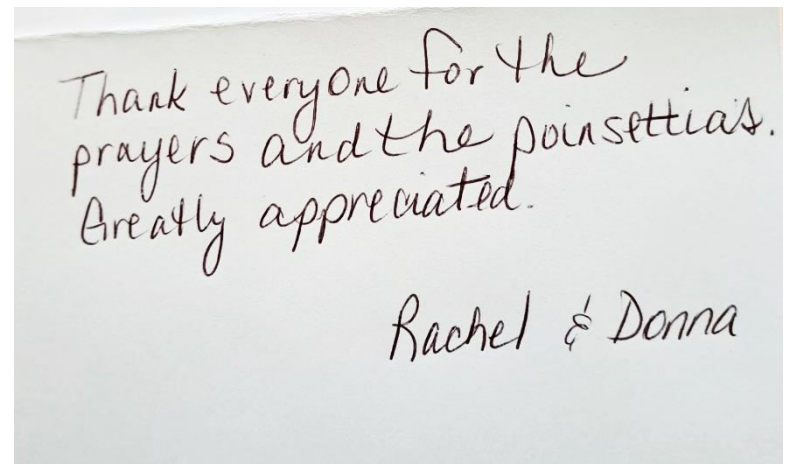 Thank everyone for the
prayers and the poinsettia's.
Greatly appreciated.
Rachel & Donna